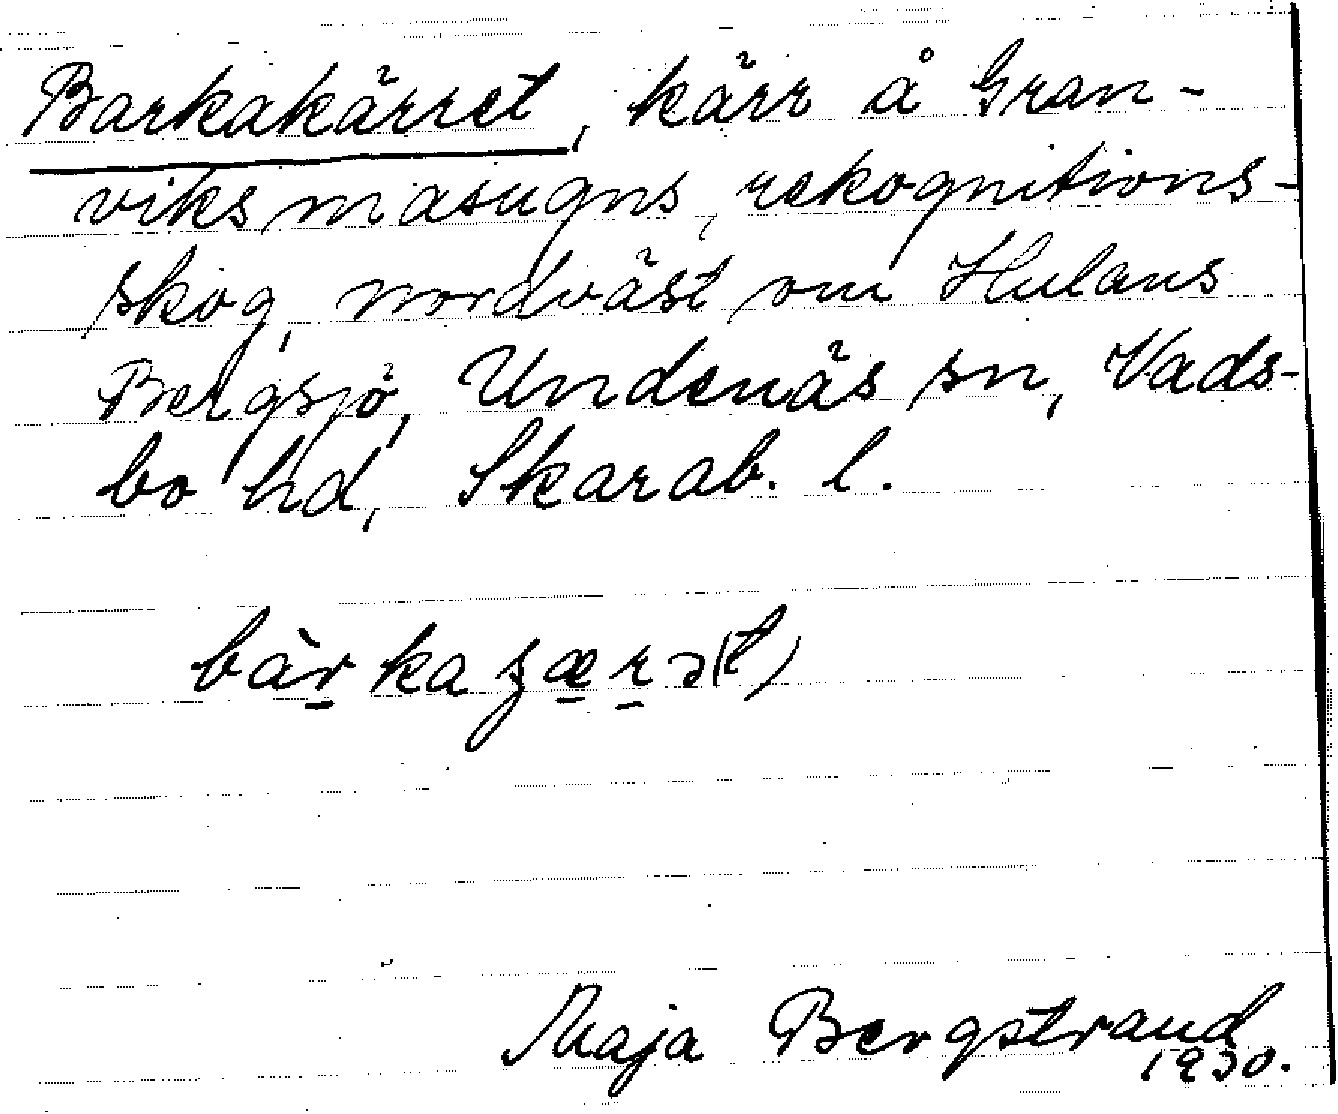 Barkakärret, kärr å Gran-
viks masugns rekognitions-
skog, nordväst om Hulans
Bergsjö, Undenäs sn, Vads-
bo hd, Skarab. l.
bàr̠kaʒæ̠r̠ə(t)
Maja Bergstrand
1930.